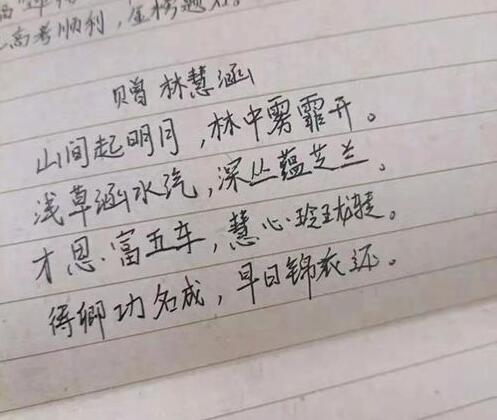 高考顺利，金榜题
赠 林慧涵
山间起明月，林中雾霏开。
浅草涵水汽，深丛蕴芝兰。
才思富五车，慧心玲珑转。
得卿功名成，早日锦衣还。